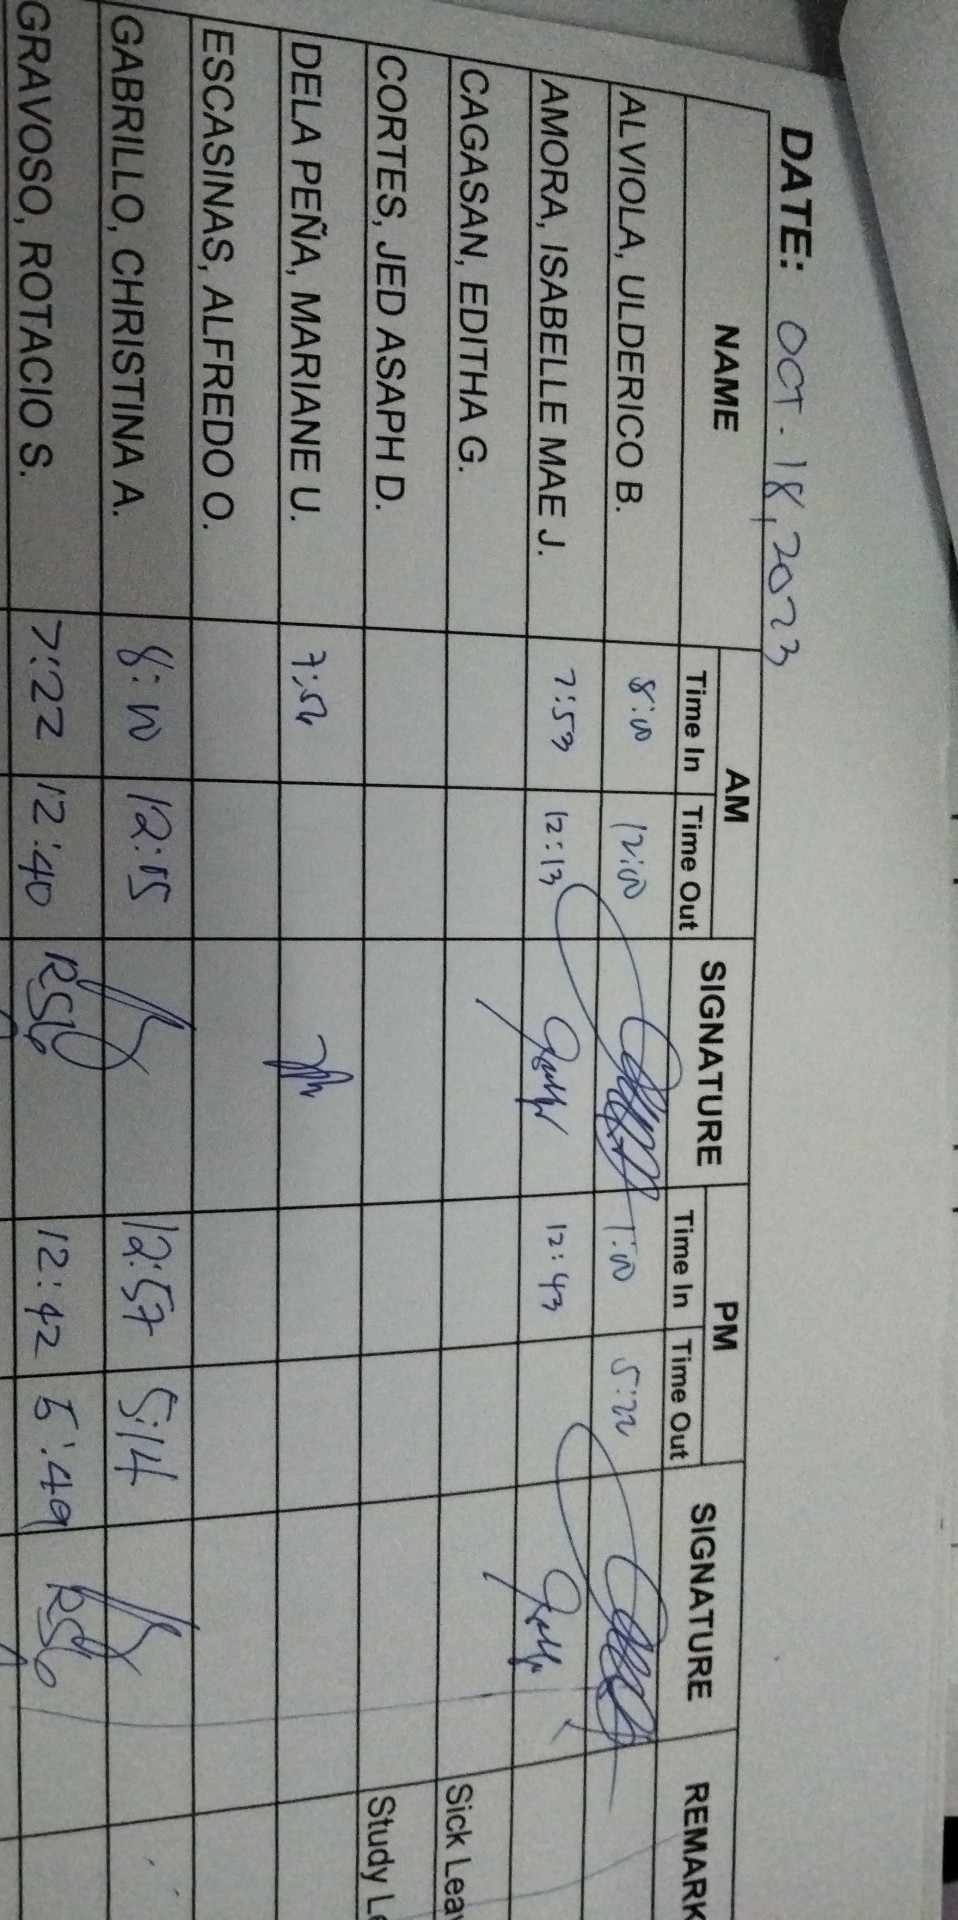 DATE: OCT. 18, 2023
NAME AM SIGNATURE PM SIGNATURE REMARK
Time In Time Out Time In Time Out
ALVIOLA, ULDERICO B. 8:00 12:00 1:00 5:22
AMORA, ISABELLE MAE J. 7:53 12:13 12:43
CAGASAN, EDITHA G. Sick Leav
CORTES, JED ASAPH D. Study Le
DELA PEÑA, MARIANE U.
ESCASINAS, ALFREDO O.
GABRILLO, CHRISTINA A. 8:10 12:05 12:57 5:14
GRAVOSO, ROTACIO S. 7:22 12:40 12:42 5:49